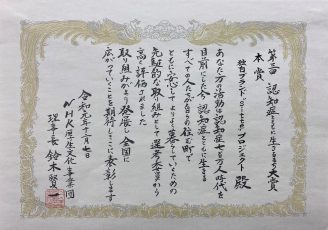 第三回 認知症とともに生きるまち大賞
本賞
殿
あなた方の活動は認知症一千万人時代を
目前にした今 認知症とともに生きる
すべての人たちが自らの住む町で
ともに安心してよりよく暮らしていくための
先駆的な取り組みとして選考委員から
高く評価されました
取り組みがより発展し全国に
広がっていくことを期待しここに表彰します
令和元年十二月七日
NHK厚生文化事業団
理事長 鈴木賢一